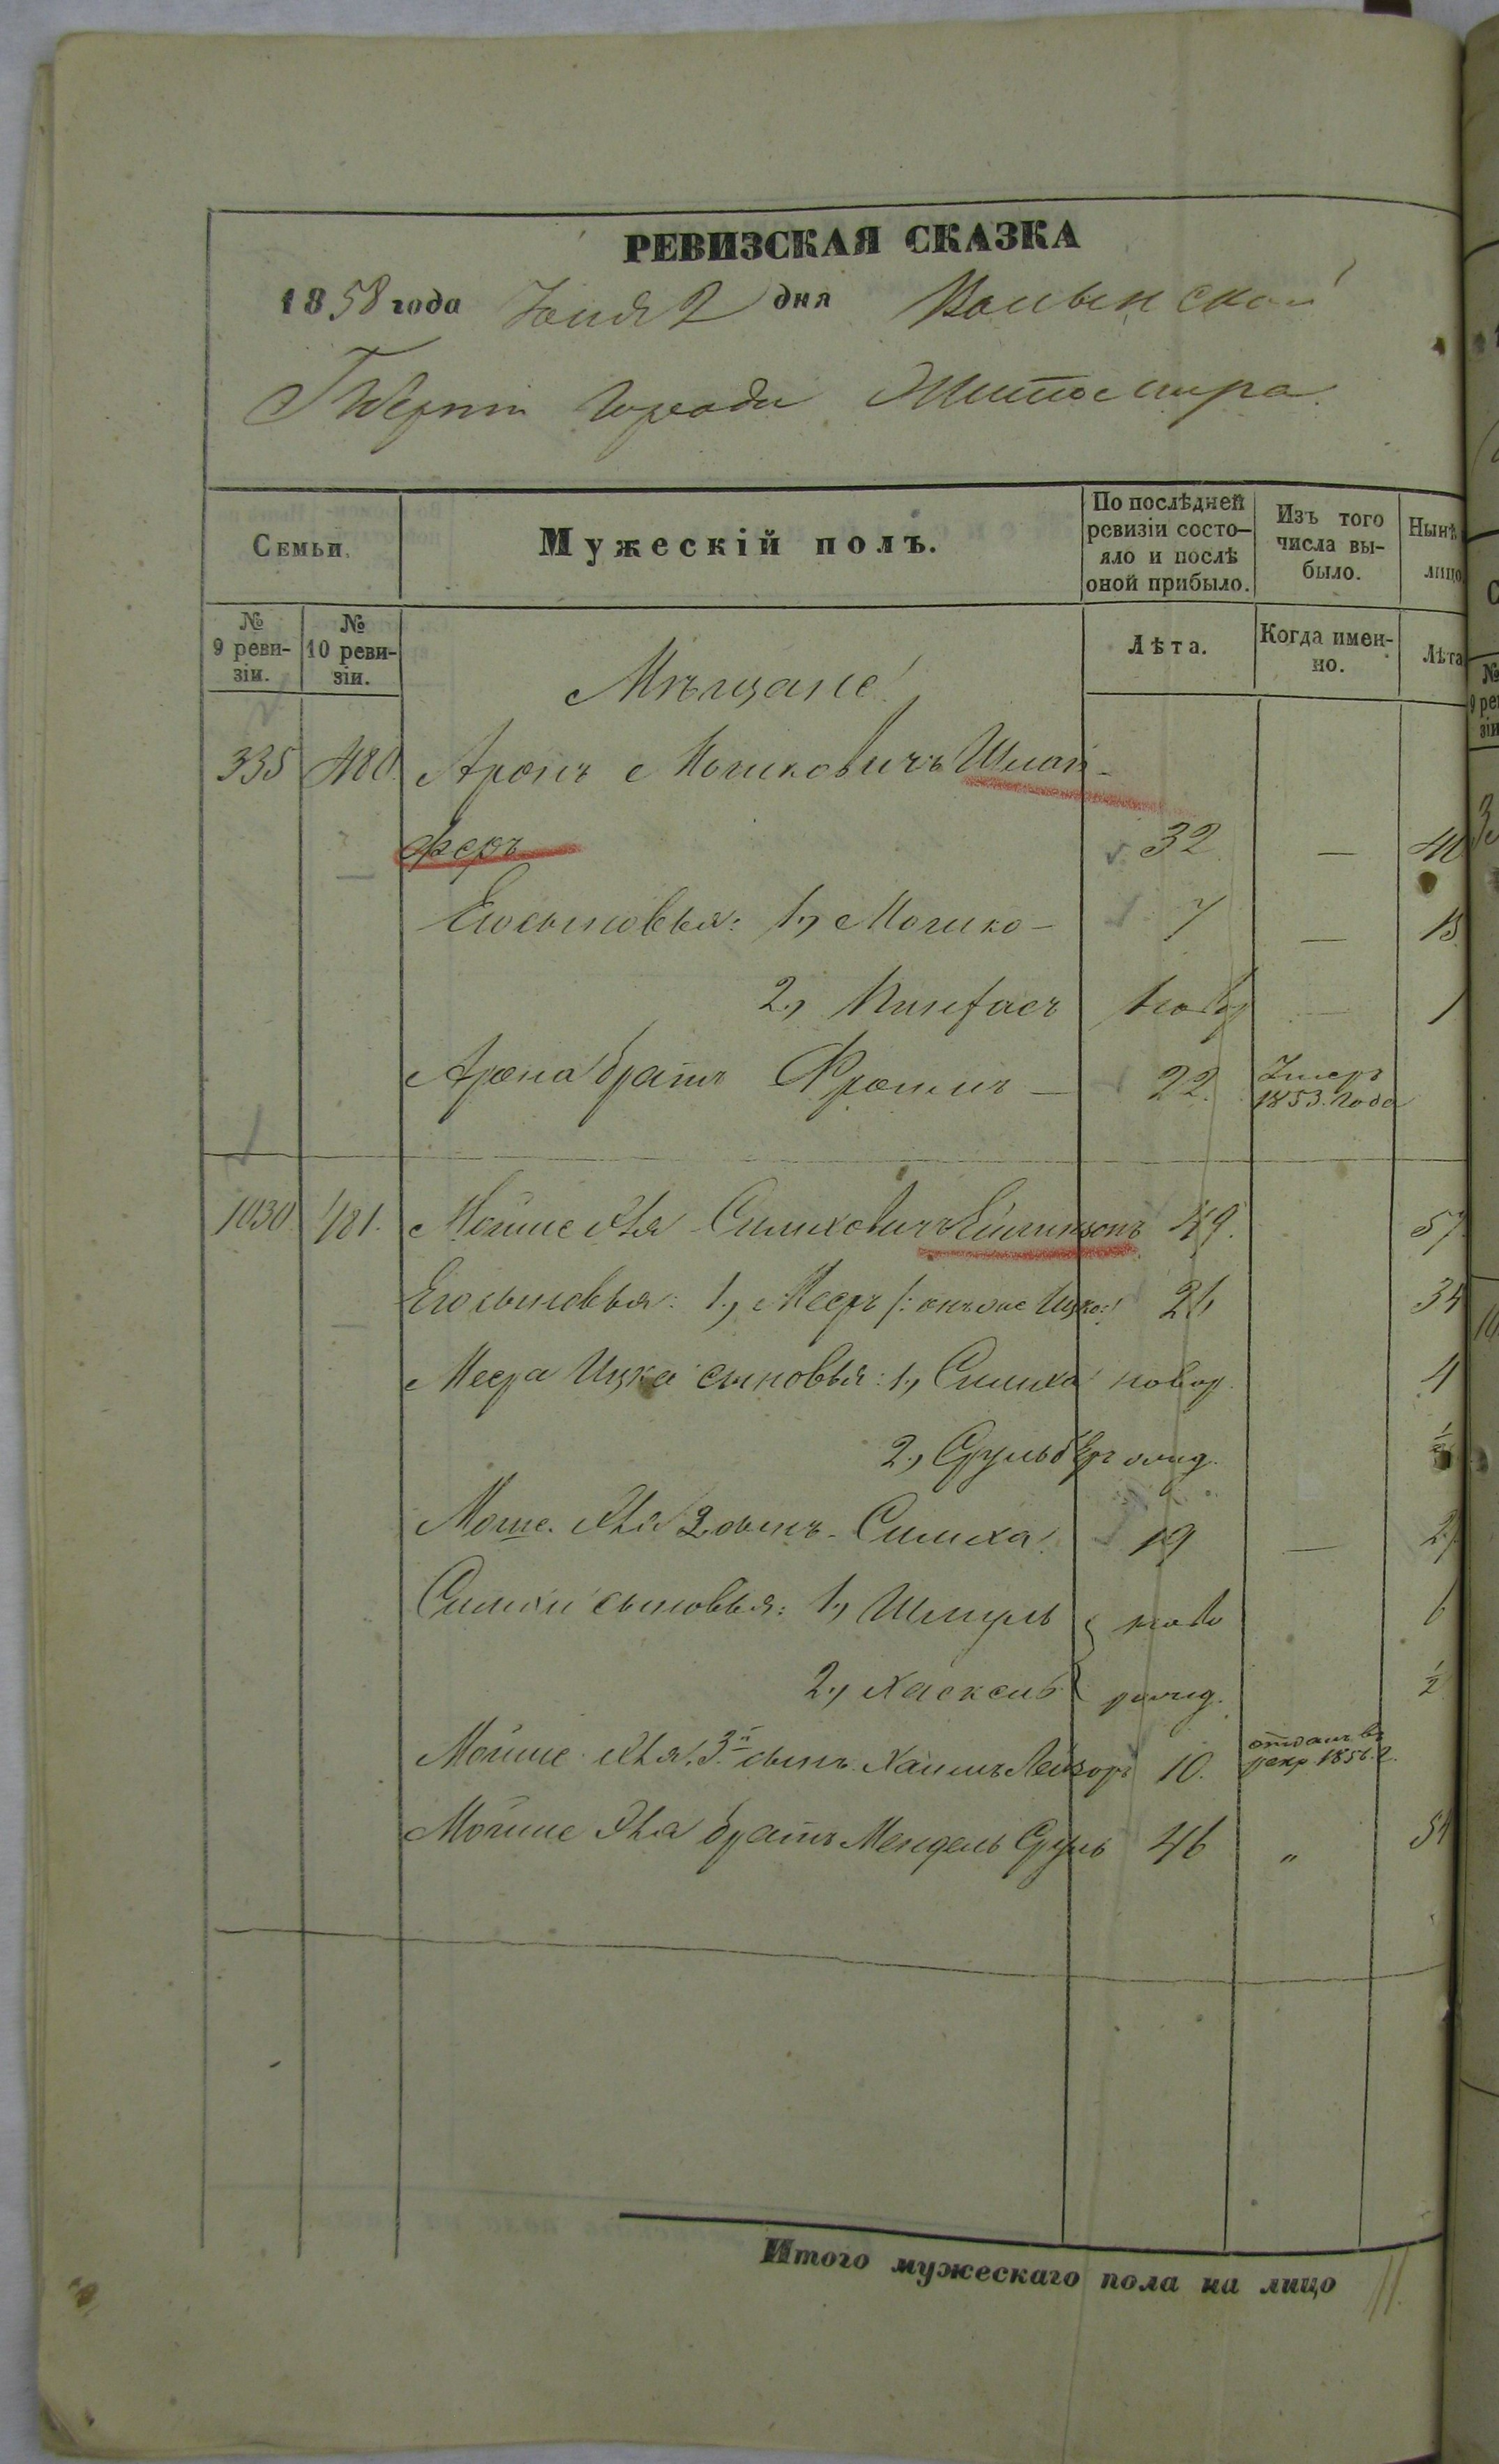 РЕВИЗСКАЯ СКАЗКА
1858 года Юня 2 дня Волынской
Губерніи Города Житомира
Семьи.
Мужескій полъ.
По послѣдней ревизіи состо-
яло и послѣ
оной прибыло.
Изъ того
числа вы-
было.
Нынѣ
лицо
№
9 реви-
зіи.
№
10 реви-
зіи.
Лѣта.
Когда имен-
но.
Лѣта
Мѣщане
335 480. Аронъ Мошковичъ Шлай-
феръ 32 — 40
Его сыновья: 1., Мошко — 7 — 15
2., 1
Арона братъ Фроимъ — 22. Умеръ
1853. года
1030. 481. Мойше Симховичъ 49. 57
Его сыновья: 1., Мееръ Ицко 26 34
Меера Ицка сыновья: 1., Симха новор. 4
2., Сруль Беръ ½
Мойше 2 сынъ — Симха 19 — 27
Симхи сыновья: 1., Шмуль ново 6
2., Хаскель рожд. ½
Мойше 3й сынъ Хаимъ Лейзоръ 10. отданъ въ
рекр. 1856. г.
Мойше братъ Мендель Сруль 46 " 54
Итого мужескаго пола на лицо 11.